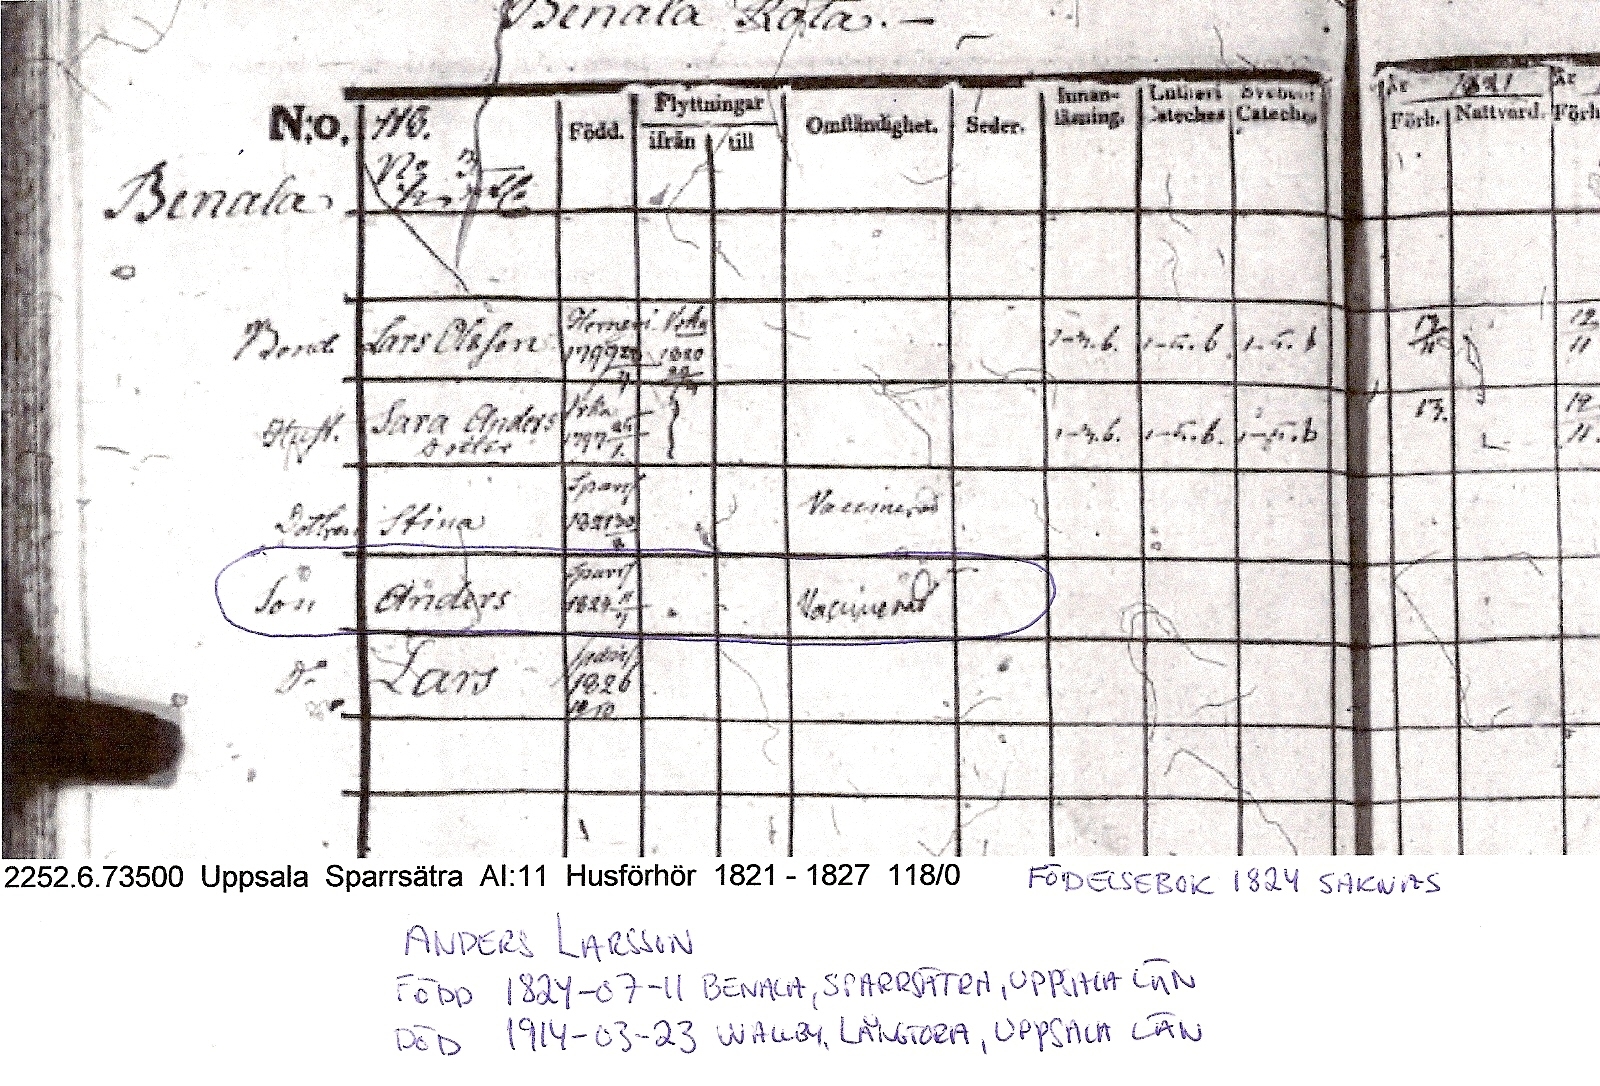 Benala Rota. —
N:o. 118. Född. Flyttningar ifrån till Omständighet. Seder. Innanläsning. Lutheri Cateches Svebelii Cateches År 1821 Förh. Nattvard. År Förh
Benala
Bond. Lars Olsson 1799 1820 1-3.b. 1-5.b. 1-5.b
Hust. Sara Anders dotter 1797 1-3.b. 1-5.b. 1-5.b 17.
Dottren Stina Sparrs 1821 30 Vaccinerad
Son Anders Sparrs 1824 11/7 Vaccinerad
Do Lars 1826
2252.6.73500 Uppsala Sparrsätra AI:11 Husförhör 1821 - 1827 118/0
FÖDELSEBOK 1824 SAKNAS
ANDERS LARSSON
FÖDD 1824-07-11 BENALA, SPARRSÄTRA, UPPSALA LÄN
DÖD 1914-03-23 WALLBY, LÅNGTORA, UPPSALA LÄN